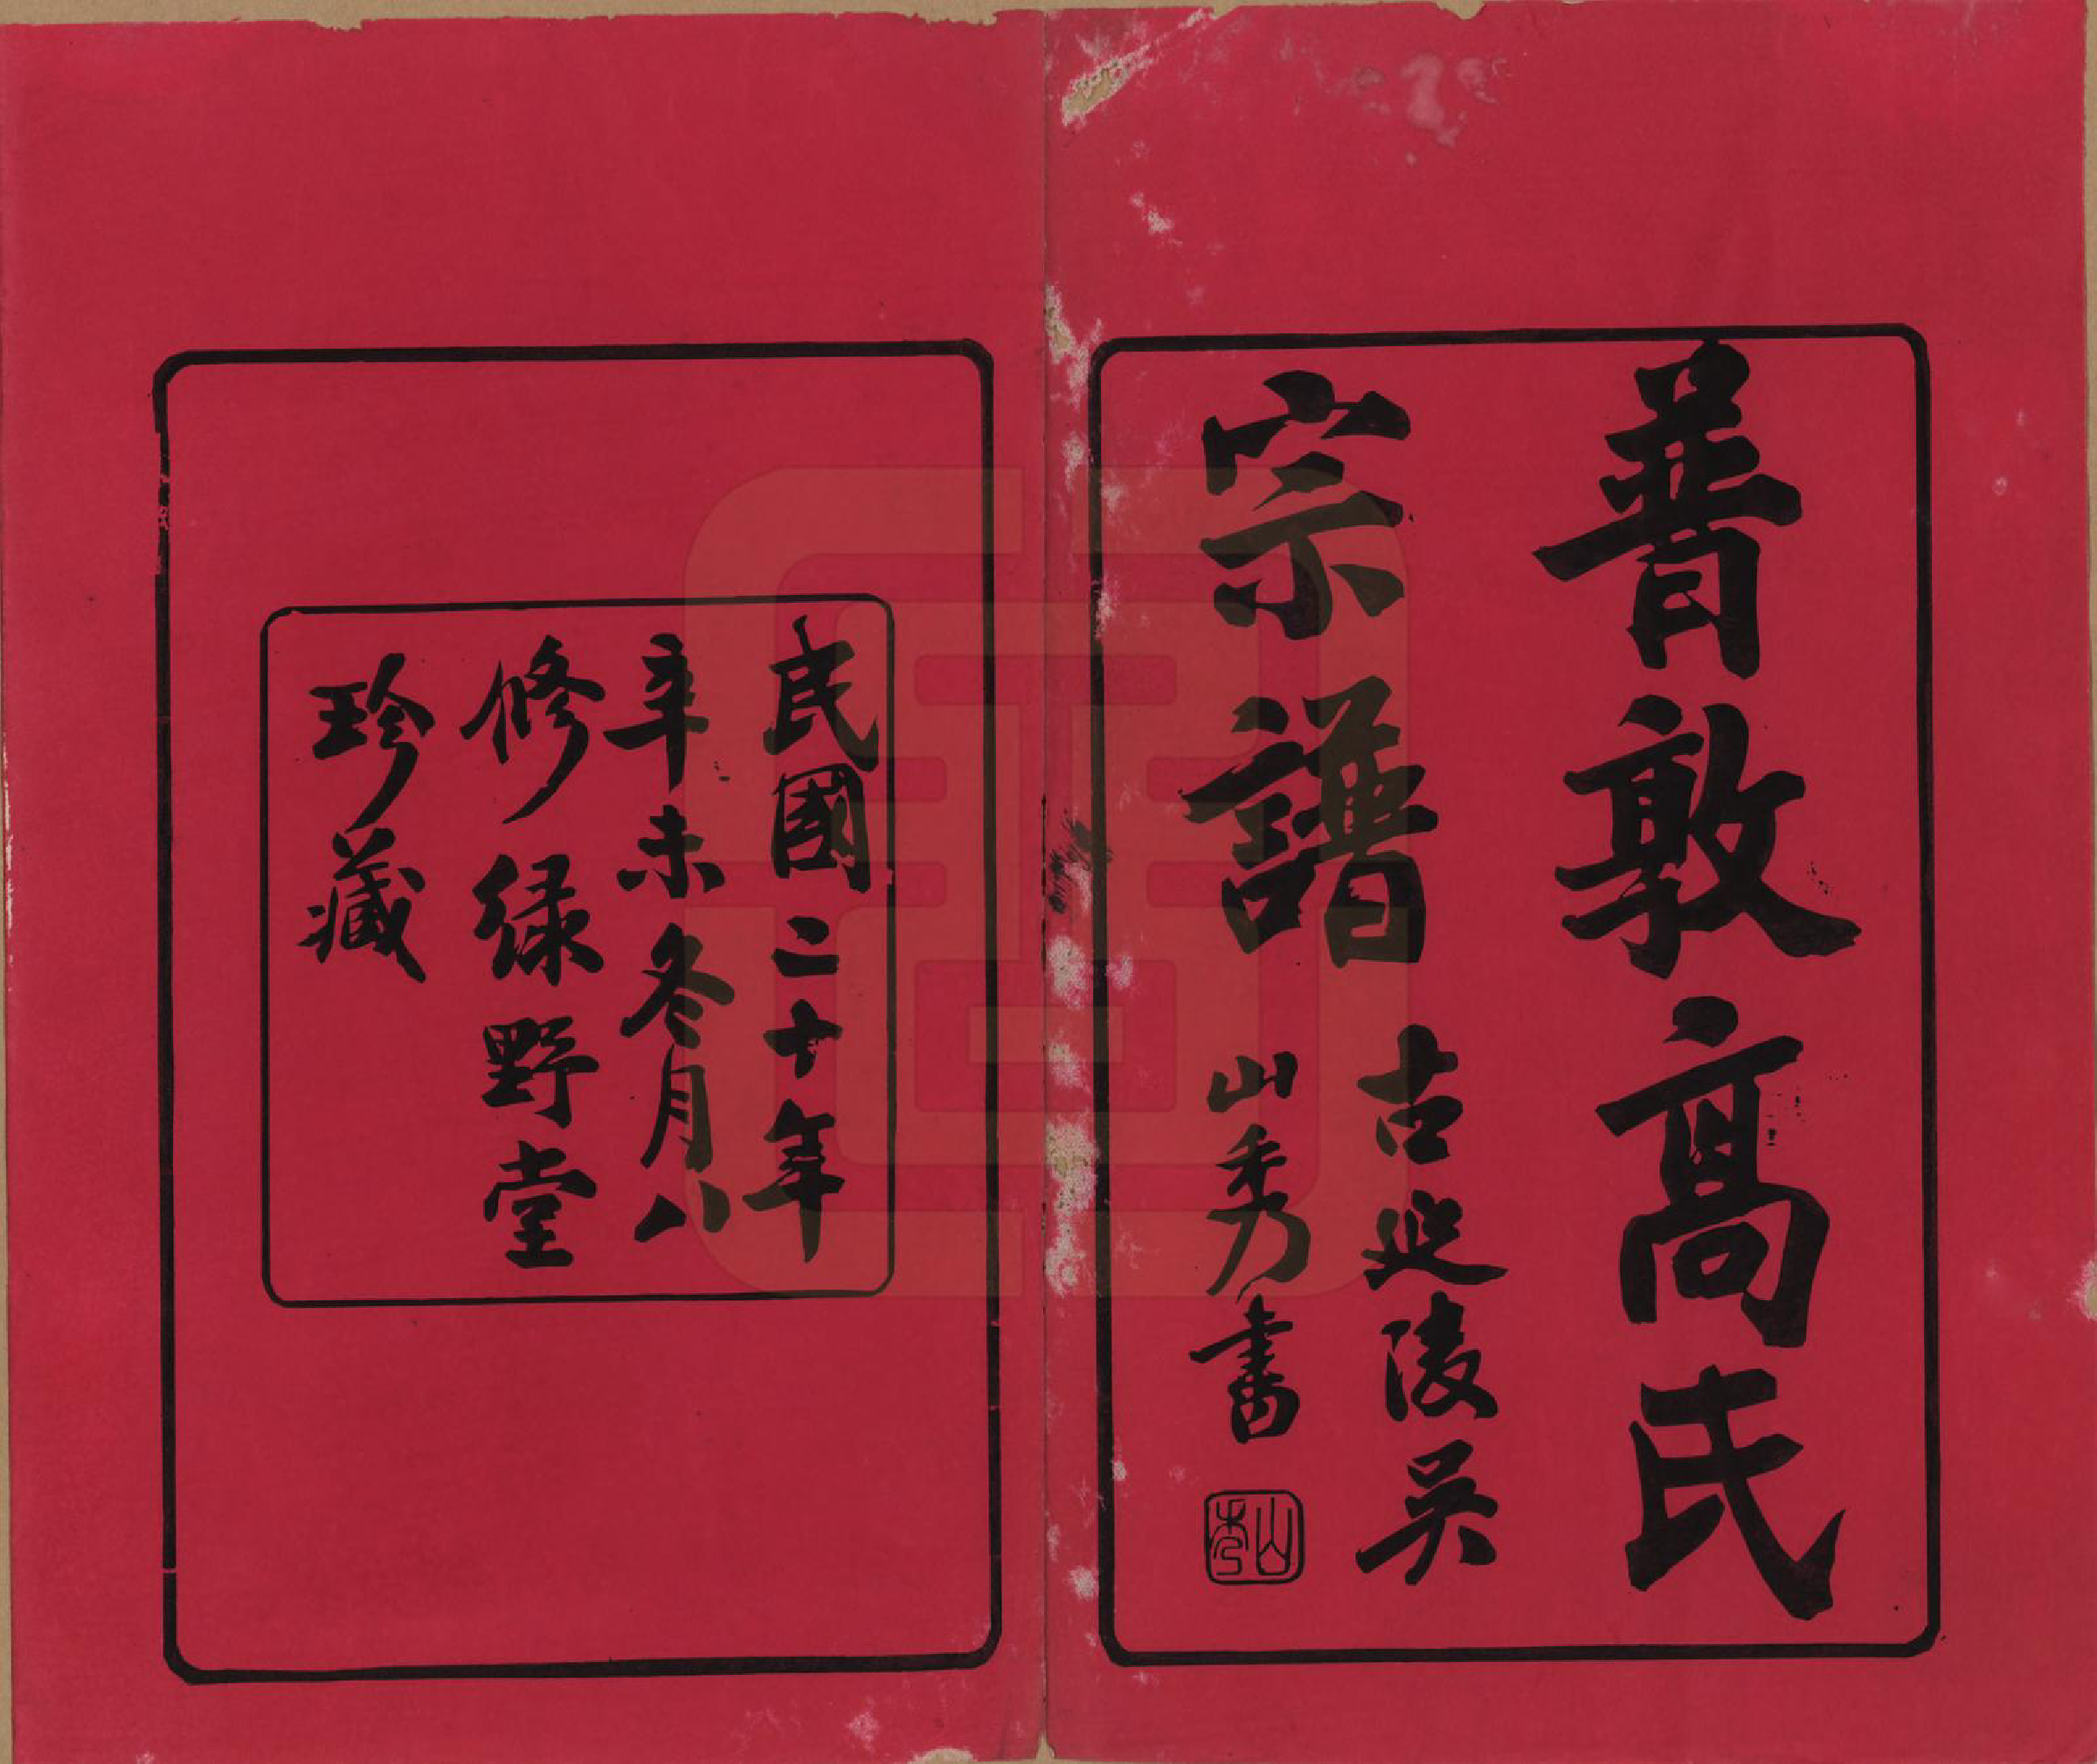 普敦高氏
宗譜
古延陵吳
山秀書
山秀
民國二十年
辛未冬月八
修綠野堂
珍藏